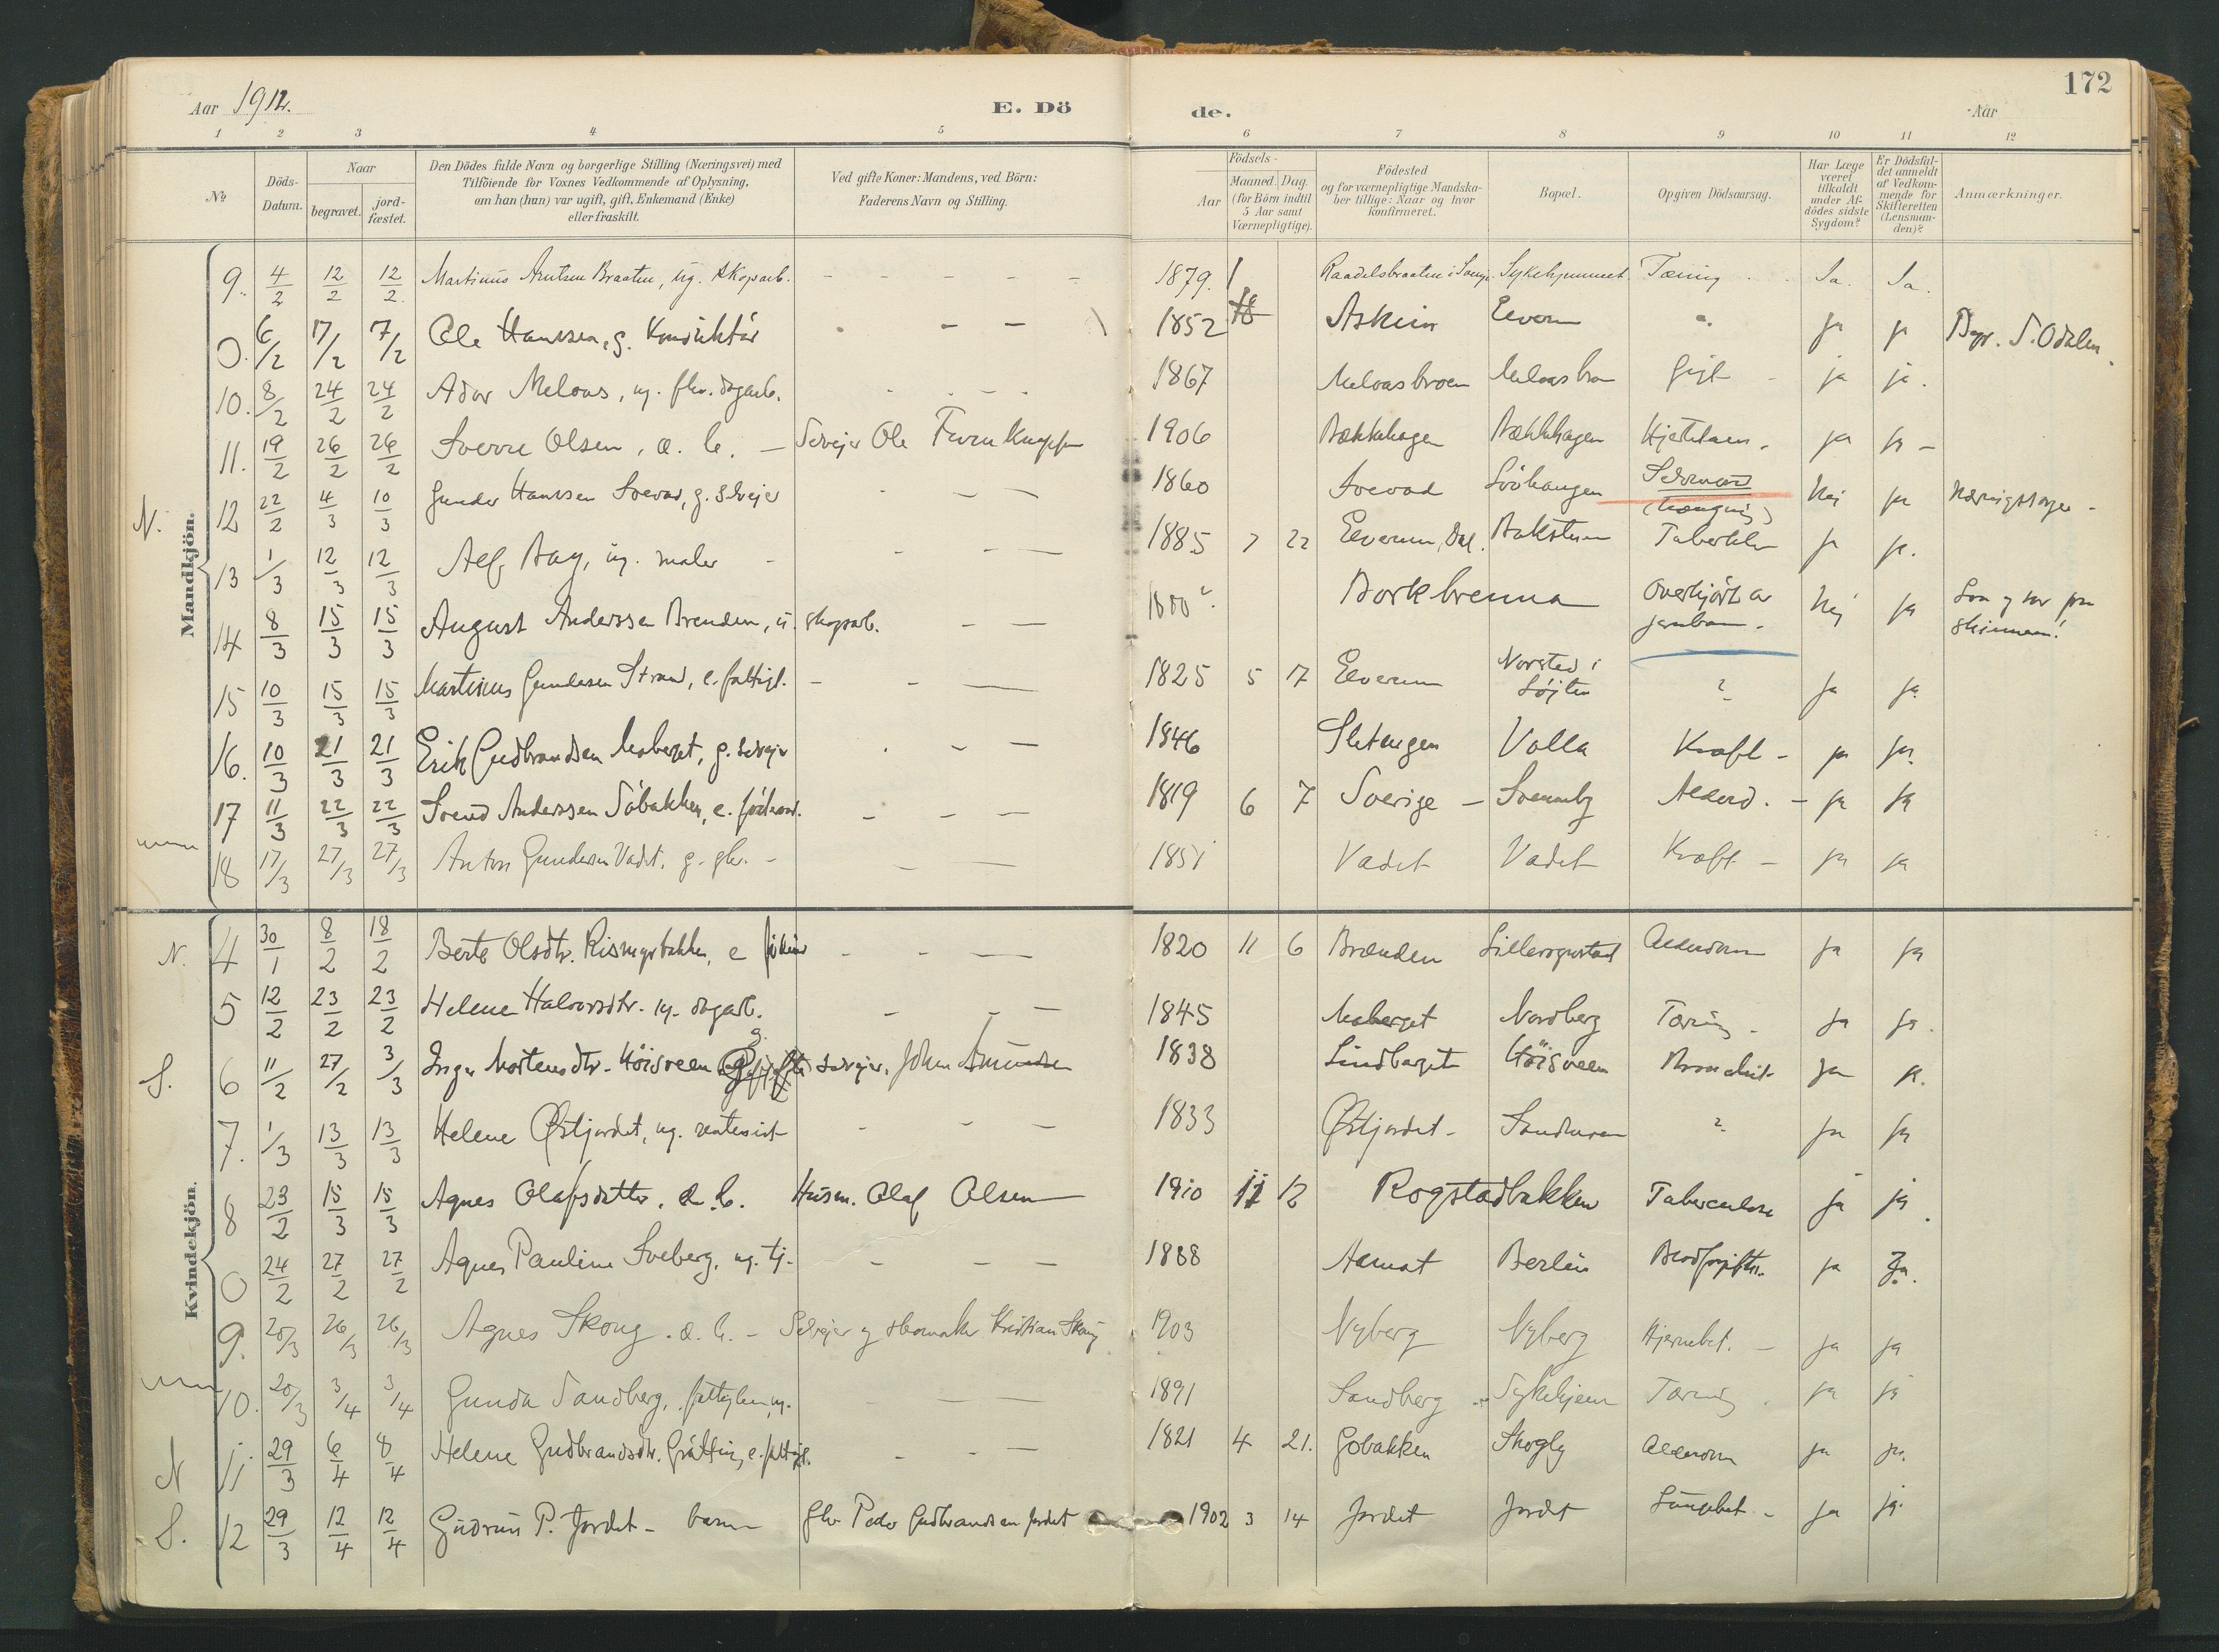 172
Aar 1912.
E. Dö
de.
Aar
1 2 3 4 5 6 7 8 9 10 11 12
No
Döds-
Datum.
Naar
begravet.
jord-
fæstet.
Den Dödes fulde Navn og borgerlige Stilling (Næringsvei) med
Tilföiende for Voxnes Vedkommende af Oplysning,
om han (hun) var ugift, gift, Enkemand (Enke)
eller fraskilt.
Ved gifte Koner: Mandens, ved Börn:
Faderens Navn og Stilling.
Födsels-
Aar
Maaned. Dag.
(for Börn indtil
5 Aar samt
Værnepligtige).
Födested
og for værnepligtige Mandska-
ber tillige: Naar og hvor
konfirmeret.
Bopæl.
Opgiven Dödsaarsag.
Har Læge
været
tilkaldt
under Af-
dödes sidste
Sygdom?
Er Dödsfal-
det anmeldt
af Vedkom-
mende for
Skifteretten
(Lensman-
den)?
Anmærkninger.
Mandkjön.
9. 4/2 12/2 12/2 Martinus Arntsen Braaten, ug. skogsarb. - - - - - 1879. Sykehjemmet. Tæring Ja. Ja.
0. 6/2 17/2 7/2 Ole Hanssen, g. Konduktör - - 1852 Askim Elverum " ja ja Begr. S. Odalen.
10. 8/2 24/2 24/2 Meloas, ug. fhv. dagarb. 1867 Meloasbroen Meloasbro Gigt - ja ja.
11. 19/2 26/2 26/2 Sverre Olsen, æ. b. - Selvejer Ole 1906 Bækkehagen Bækkehagen ja ja -
N. 12 22/2 4/3 10/3 Gunder Hanssen Svevad, g. Selvejer - - 1860 Svevad Selvmord
(hængning) Nej ja Næringssorger -
13 1/3 12/3 12/3 Alf Aag, ug. maler - - - 1885 7 22 Elverum, ja ja.
14 8/3 15/3 15/3 August Anderssen Brenden, u. skogsarb. - - Borkbrenna Overkjört av
jernban. Nej ja
15 10/3 15/3 15/3 Martinus Gundersen Strand, e. fattigl. - - - 1825 5 17 Elverum Norsted i
Løjten ? ja ja.
16. 10/3 21/3 21/3 Erik Gudbrandsen Moberget, g. selvejer - - 1846 Sletengen Volla Kræft - ja ja.
17 11/3 22/3 22/3 Svend Anderssen Söbakken, e. - - - 1819 6 7 Sverige - Svenneby Alderd. - ja ja
18 17/3 27/3 27/3 Anton Gundersen Vadet, g. gbr. - - - 1851 Vadet Vadet Kræft - ja ja
Kvindekjön.
N. 4 30/1 8/2 18/2 Berte Olsdtr. e - - - 1820 11 6 Brænden Alderdom ja ja
5 12/2 23/2 23/2 Helene Halvorsdtr. ug. dagarb. - - - 1845 Moberget Nordberg Tæring - ja ja.
S. 6 11/2 27/2 3/3 Inger Mortensdtr. Höisveen g. selvejer. John Amundsen 1838 Lindberget Höisveen Bronchit. ja ja.
7. 1/3 13/3 13/3 Helene Østjordet, ug. - - - 1833 Østjordet - ? ja ja
8 23/2 15/3 15/3 Agnes Olafsdatter. æ. b. Husm. Olaf Olsen 1910 11 12 Rogstadbakken Tuberculose ja ja.
0 24/2 27/2 27/2 Agnes Pauline Sveberg, ug. tj. - - - 1888 Aamot Berlin Blodforgiftn. ja Ja.
9. 20/3 26/3 26/3 Agnes Skoug. æ. b. - Selvejer og skomaker Kristian Skoug 1903 Nyberg Nyberg Hjernebet. - ja ja
10. 20/3 3/4 3/4 Gunda Sandberg, ug. - - 1891 Sandberg Sykehjem Tæring. ja ja
N 11 29/3 6/4 8/4 Helene Gudbrandsdtr. Gråttin, e. fattigl. - - - 1821 4 21. Gobakken Skogly Alderdom ja ja.
S. 12 29/3 12/4 12/4 Gudrun P. Jordet - barn Gbr Peder Gudbrandsen Jordet 1902 3 14 Jordet Jordet Lungebet. - ja ja.